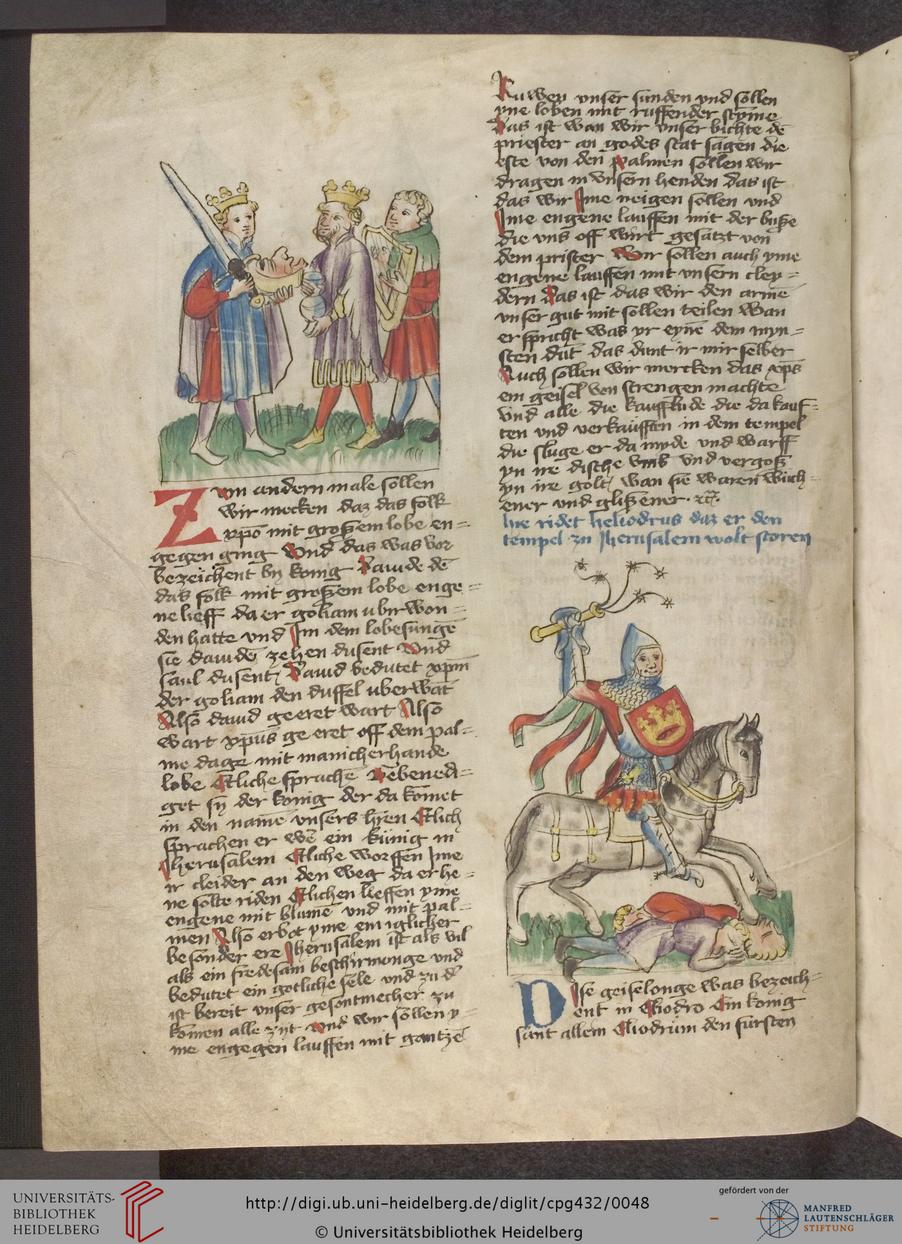 zum andern male sollen
wir mercken daz das folk
xp̄o mit großem lobe en=
gegen ging Vnd das was vor
bezeichent by konig Dauide dē
das folk mit großem lobe enge=
ne lieff da er goliam ubirwon=
den hatte vnd Jm dem lobesunge
sie dauidē zehen dusent Vnd
saul dusent Dauid bedutet xp̄m
der goliam den duffel uberwāt
Also dauid geeret wart Also
wart xp̄us ge eret off dem pal=
me dage mit manicherhande
lobe Etliche sprache Gebened=
get sy der konig der da komet
in den name vnsers hren Etlich
sprachen er wē ein künig in
Jherusalem Etliche worffen Jme
ir cleider an den weg da er he=
ne solte riden Etlichen lieffen yme
engene mit blumē vnd mit pal=
men Also erbot yme ein iglicher
besonder ere Jherusalem ist als vil
als ein fredesam beschirmonge vnd
bedutet ein gotliche sele vnd zu dˢ
ist bereit vnser gesontmecher zu
komen alle zijt Vnd wir sollen y=
me engegen lauffen mit gantzē
Ruwen vnser sunden vnd sollen
yne loben mit ruffender styme
Das ist wan wir vnser bichte dē
priester an godes stat sagen die
este von den palmen sollen wir
dragen in vnsern henden das ist
das wir Jme neigen sollen vnd
Jme engene lauffen mit der buße
die vns off wirt gesatzt von
dem prister Wir sollen auch yme
engene lauffen mit vnsern cley=
dern Das ist das wir den armē
vnser gut mit sollen teilen Wan
er spricht was yr eyne dem myn=
sten dut das dunt ir mir selber
Auch sollen wir mercken das xp̄s
ein geisel von strengen machte
vnd alle die kauffude die da kauf=
ten vnd verkaufften in dem tempel
die sluge er da myde vnd warff
yn ire dische vmb vnd vergoß
yn ire golt wan sie waren wuch=
ener vnd glißener
hie ridet heliodrus daz er den
tempel zu Jherusalem wolt storen
Dise geiselonge was bezeich=
ent in Eliodro Ein konig
sant allem Eliodrum den fursten
UNIVERSITÄTS-
BIBLIOTHEK
HEIDELBERG
http://digi.ub.uni-heidelberg.de/diglit/cpg432/0048
© Universitätsbibliothek Heidelberg
gefördert von der
MANFRED
LAUTENSCHLÄGER
STIFTUNG